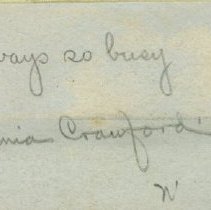 ways so busy
nia Crawford
N